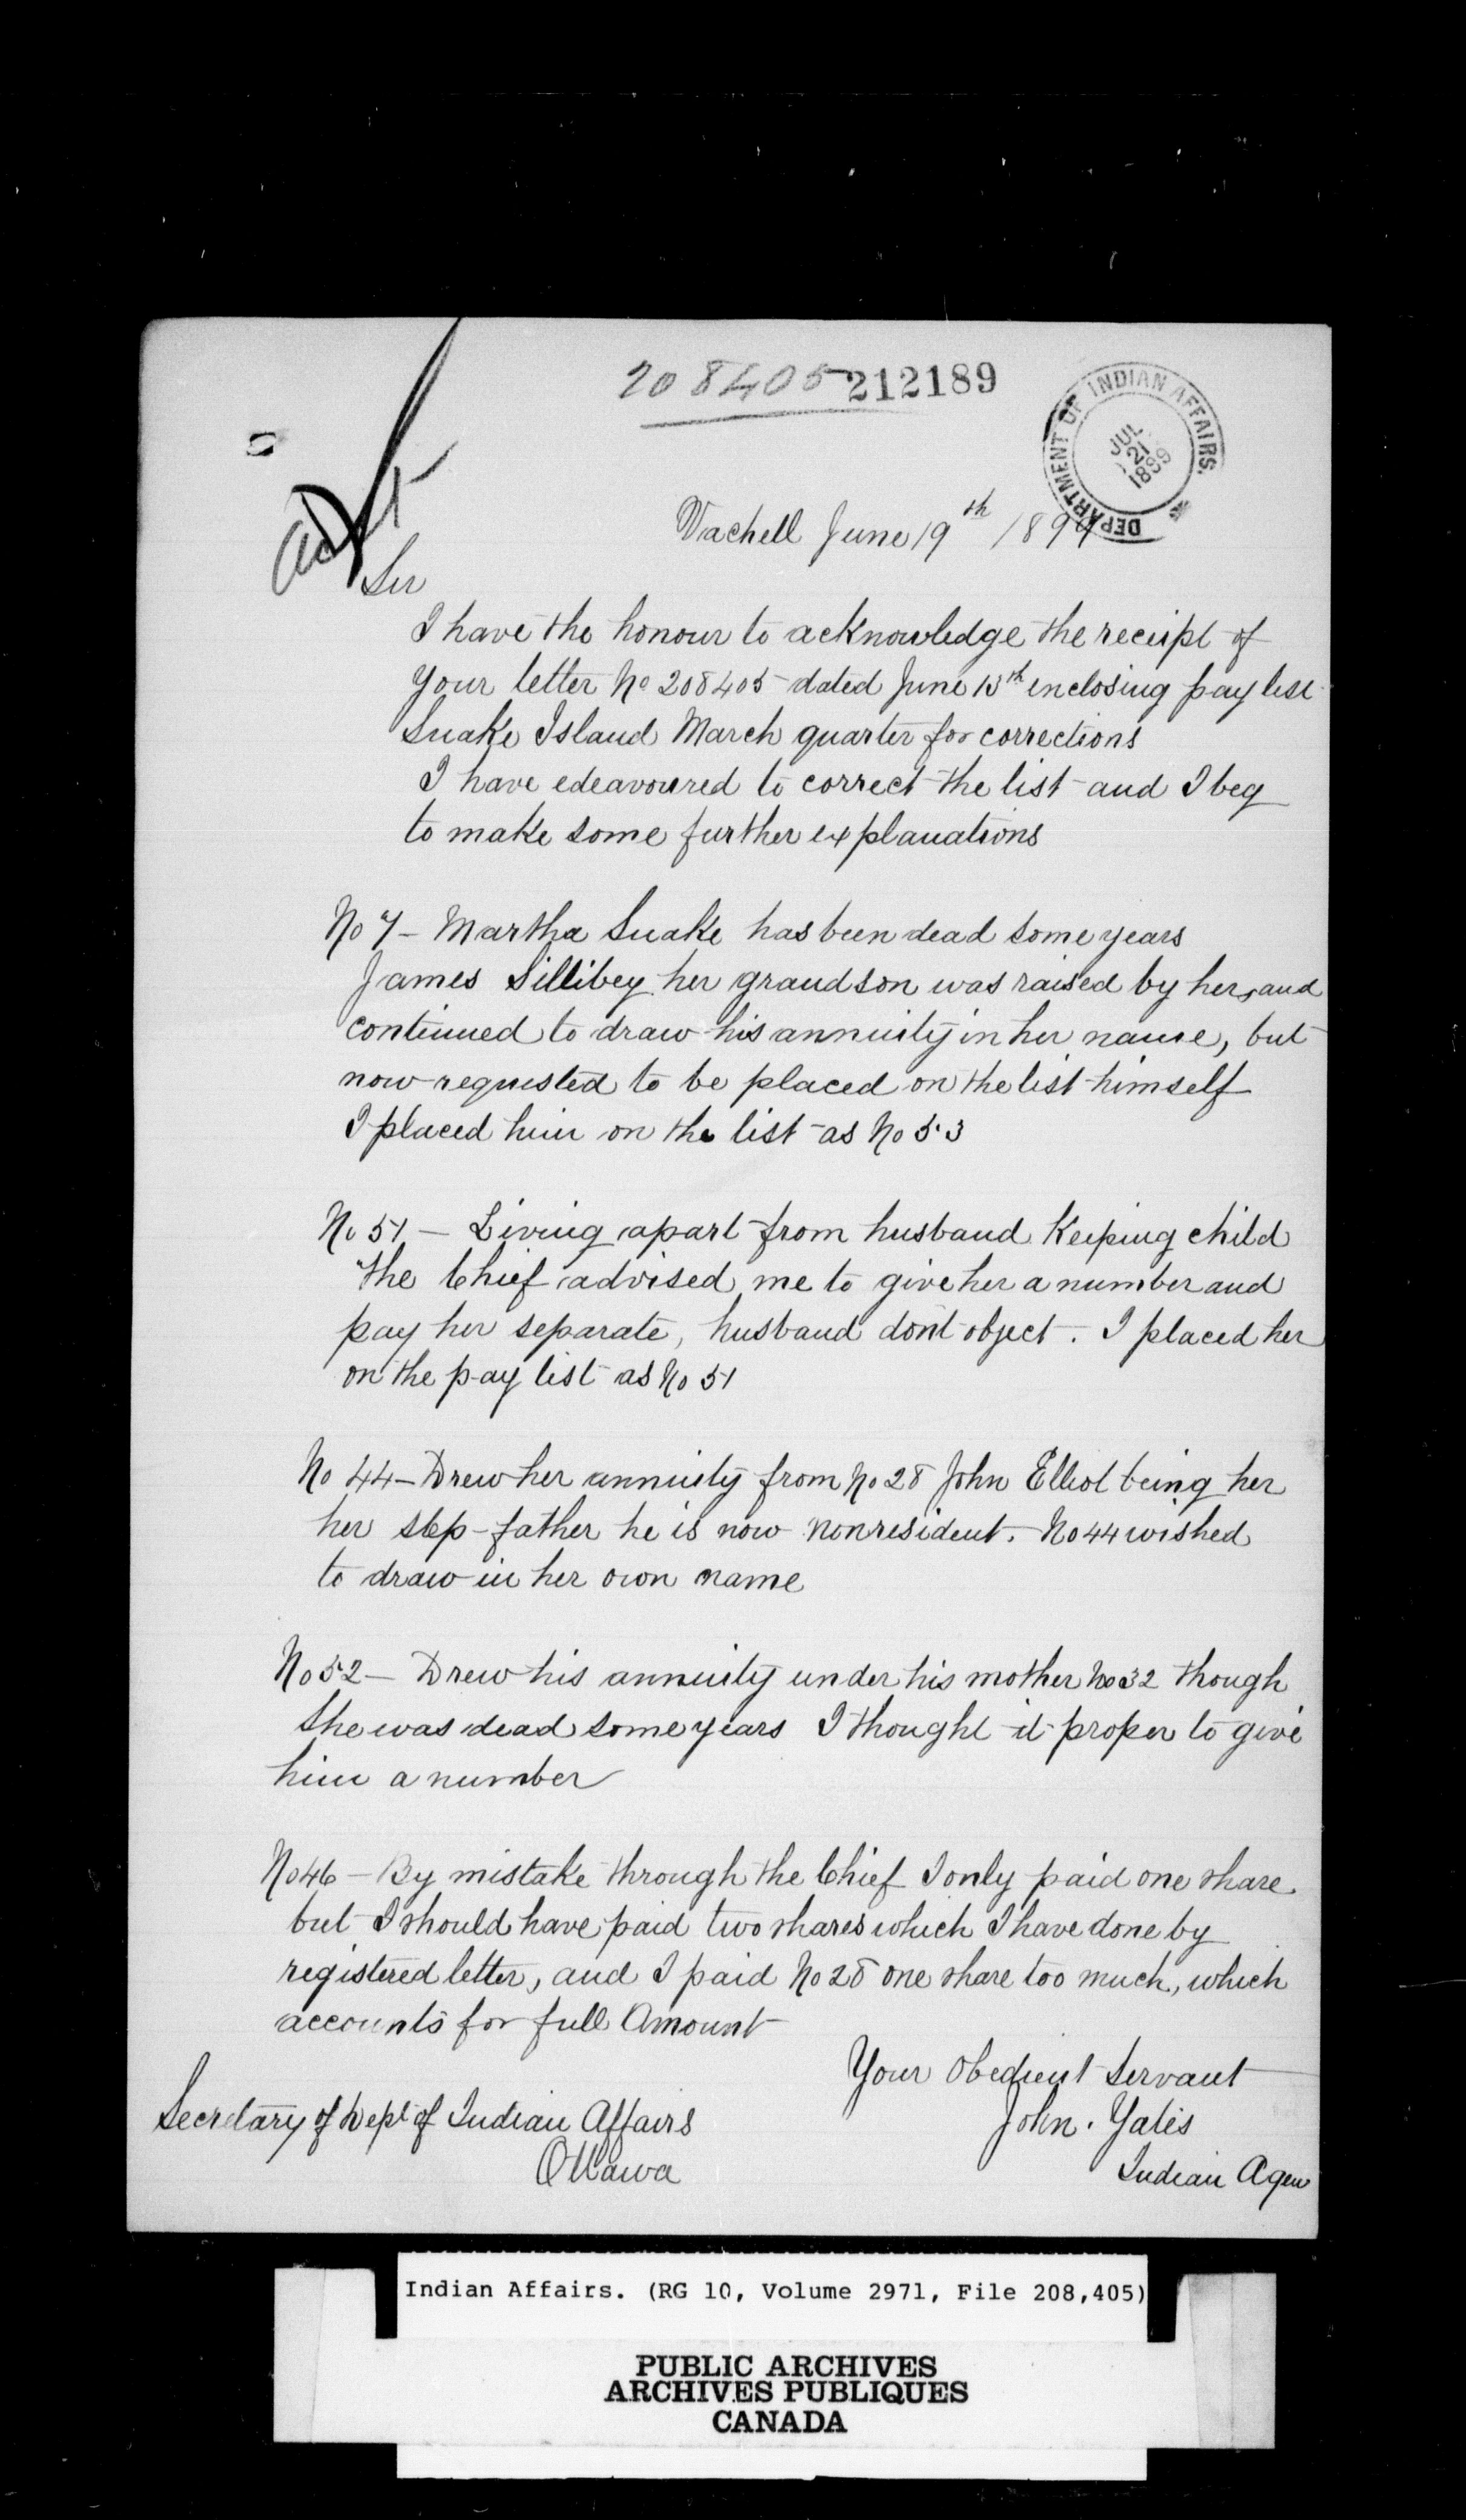 208405 212189
DEPARTMENT OF INDIAN AFFAIRS.
JUL 21 1899
Vachell June 19th 1899
Sir
I have the honour to acknowledge the receipt of
your letter No 208405 dated June 15th enclosing pay list
Snake Island March quarter for corrections
I have edeavoured to correct the list and I beg
to make some further explanations
No 7 – Martha Snake has been dead some years
James Sillibey her grandson was raised by her, and
continued to draw his annuity in her name, but
now requested to be placed on the list himself
I placed him on the list as No 53
No 51 – Living apart from husband Keeping child
the Chief advised me to give her a number and
pay her separate, husband dont object. I placed her
on the pay list as No 51
No 44 – Drew her annuity from No 28 John Elliot being her
her step-father he is now nonresident. No 44 wished
to draw in her own name
No 52 – Drew his annuity under his mother No 32 though
she was dead some years I thought it proper to give
him a number
No 46 – By mistake through the Chief I only paid one share
but I should have paid two shares which I have done by
registered letter, and I paid No 28 one share too much, which
accounts for full Amount
Your Obedient Servant
Secretary of Dept of Indian Affairs
John. Yates
Ottawa
Indian Agen
Indian Affairs. (RG 10, Volume 2971, File 208,405)
PUBLIC ARCHIVES
ARCHIVES PUBLIQUES
CANADA